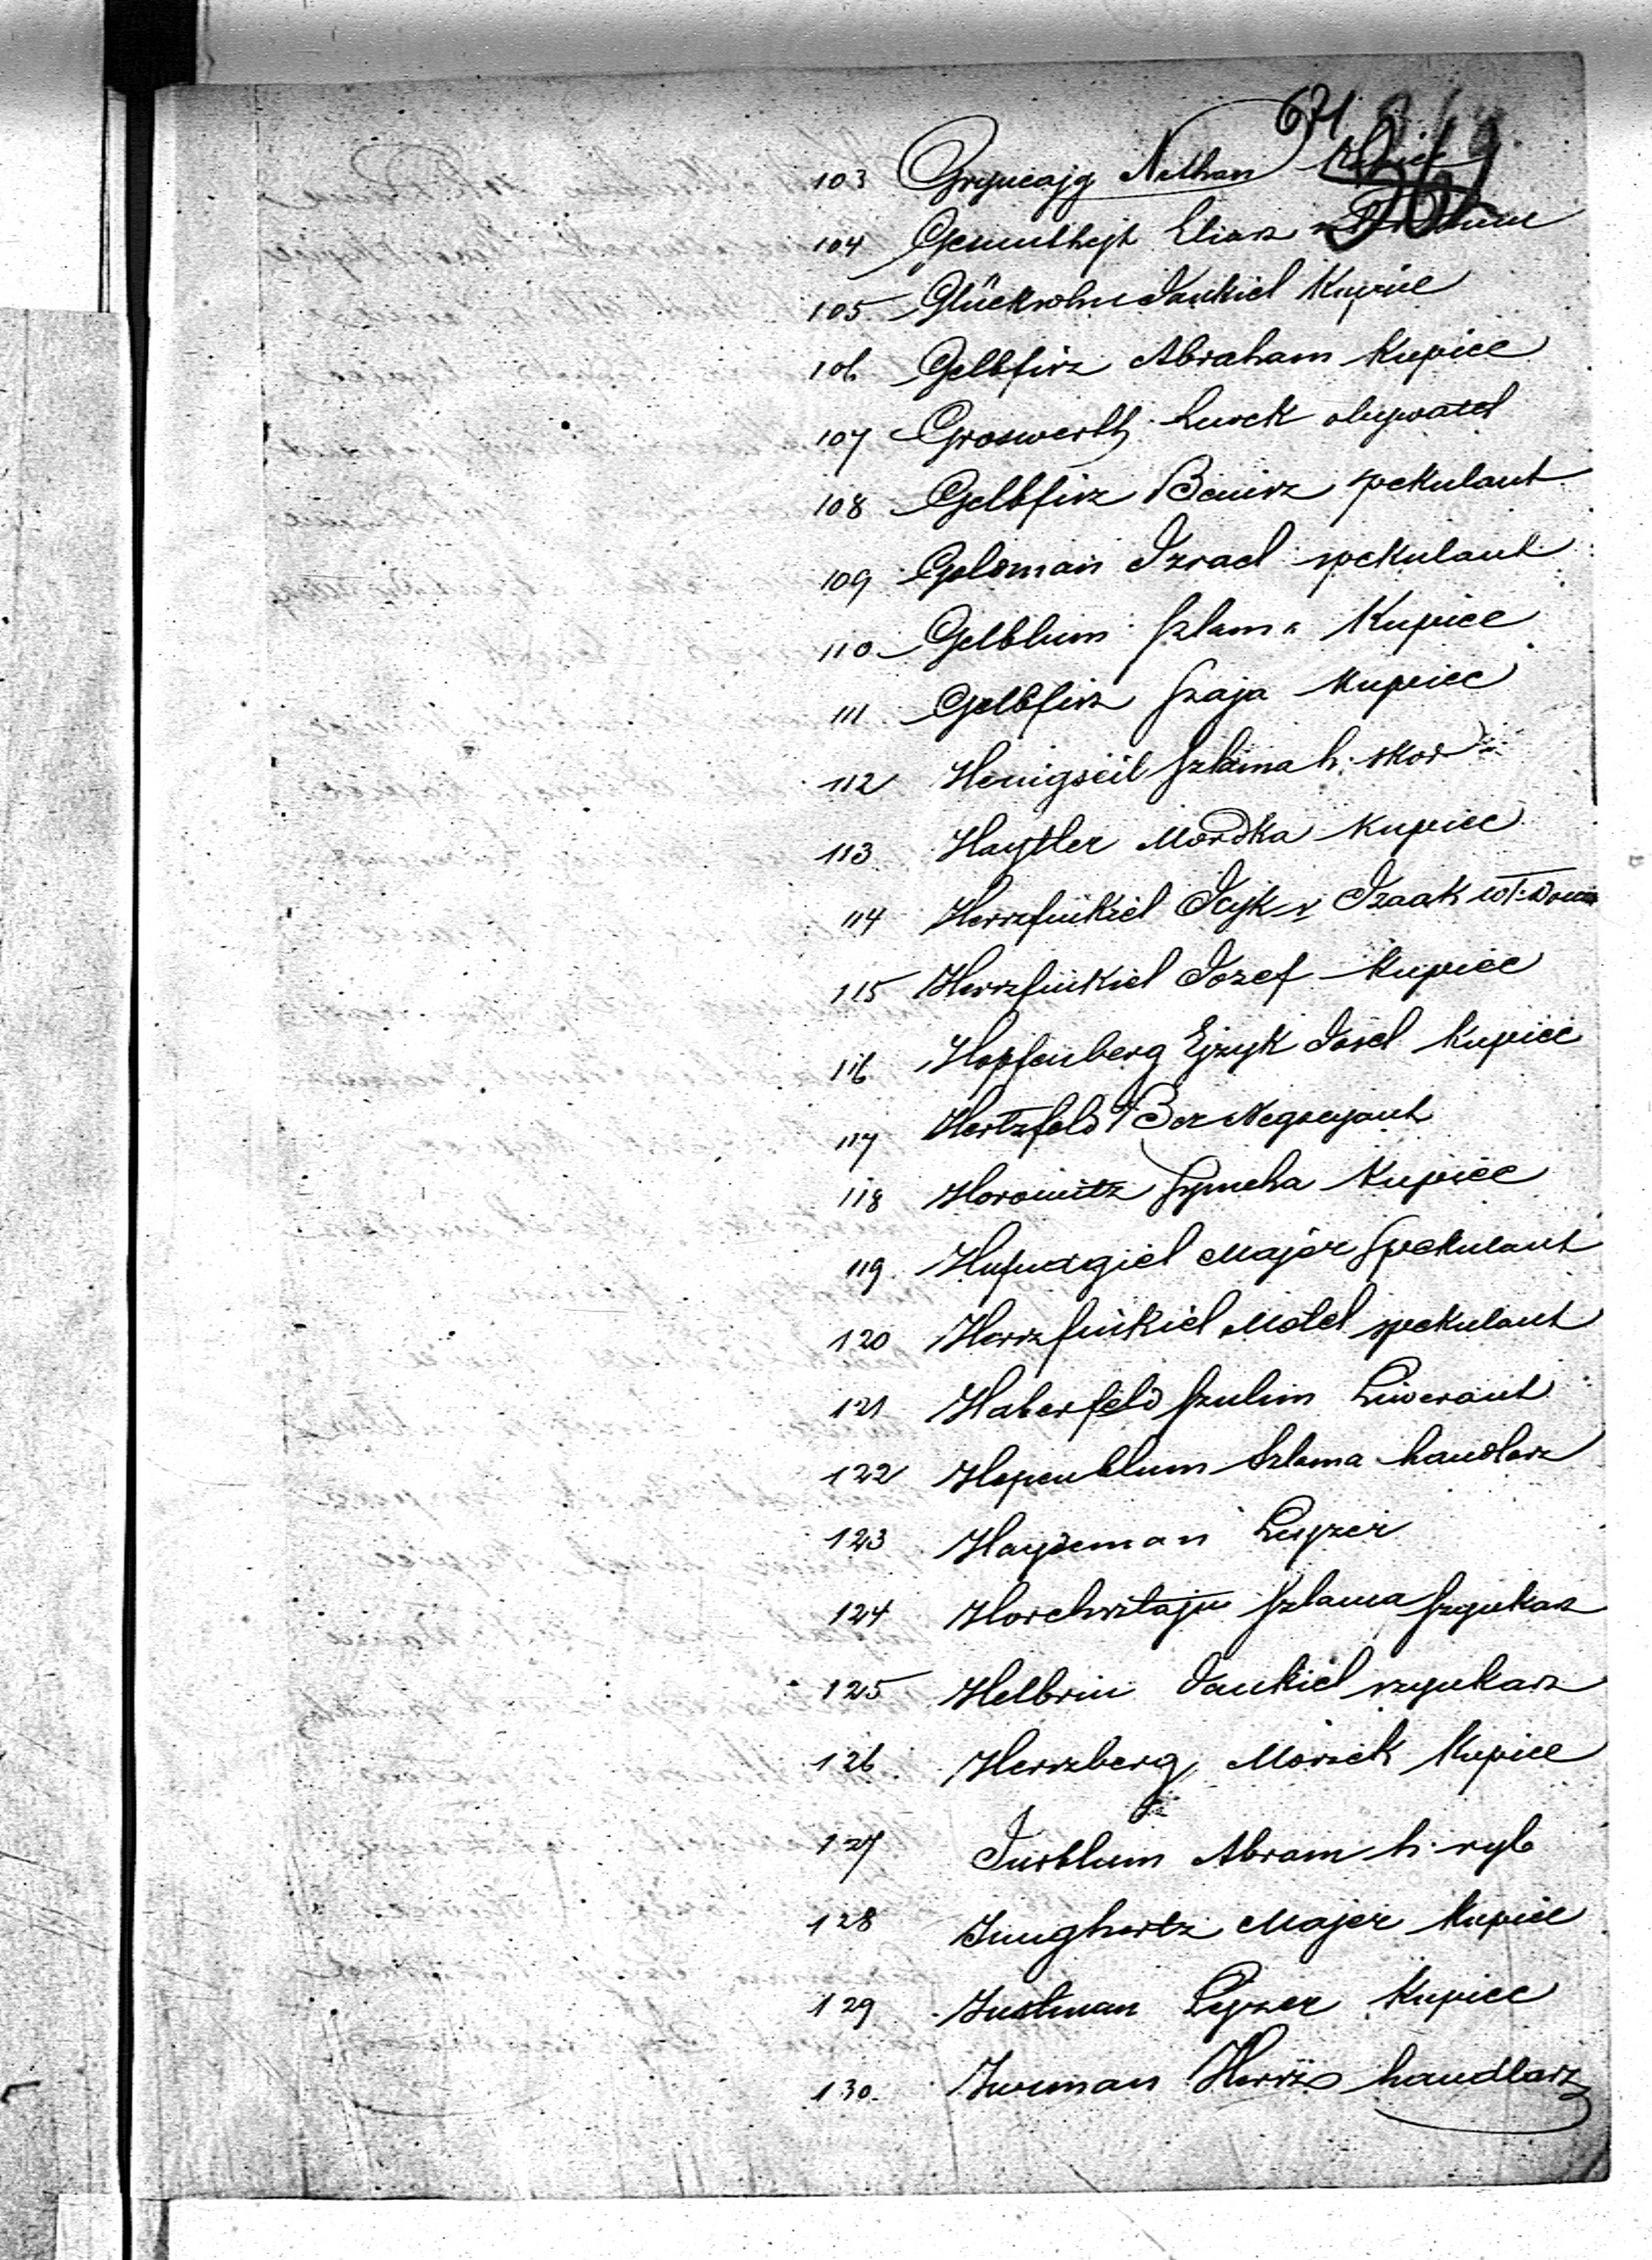 671
103 Gryncajg Nathan
104 Gesunthejt Eliasz
105 Glücksohn Jankiel Kupiec
106 Gelbfisz Abraham Kupiec
107 Groswerth Lewek obywatel
108 Gelbfisz Beniss spekulant
109 Goldman Izrael spekulant
110 Gelblum Szlama Kupiec
111 Gelbfisz Szaja Kupiec
112 Henigseil Szlama h. skór
113 Haytler Mordka Kupiec
114 Herszfinkiel Icyk v Izaak wł. Domu
115 Herszfinkiel Jozef Kupiec
116 Hopfenberg Ejzyk Josel Kupiec
117 Hertzfeld Ber Negocyant
118 Horowitz Symcha Kupiec
119 Hufnagiel Majer Spekulant
120 Herszfinkiel Motel spekulant
121 Haberfeld Szulim Liwerant
122 Hopenblum Szlama handlarz
123 Haydeman Leyzer
124 Horchsztajn Szlama Szynkarz
125 Helbrin Jankiel szynkarz
126 Herszberg Morsek Kupiec
127 Jurblum Abram h. ryb
128 Junghertz Majer Kupiec
129 Justman Lejzer Kupiec
130 Herszs handlarz